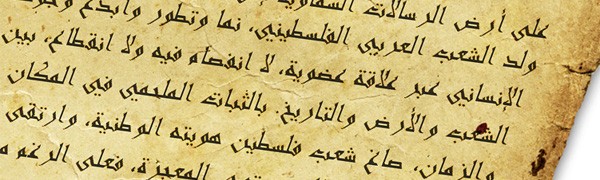 على أرض الرسالات السماوية
ولد الشعب العربي الفلسطيني، نما وتطور وأبدع
الإنساني عبر علاقة عضوية، لا انفصام فيه ولا انقطاع، بين
الشعب والأرض والتاريخ. بالثبات الملحمي في المكان
والزمان، صاغ شعب فلسطين هويته الوطنية، وارتقى
المعجزة، فعلى الرغم م